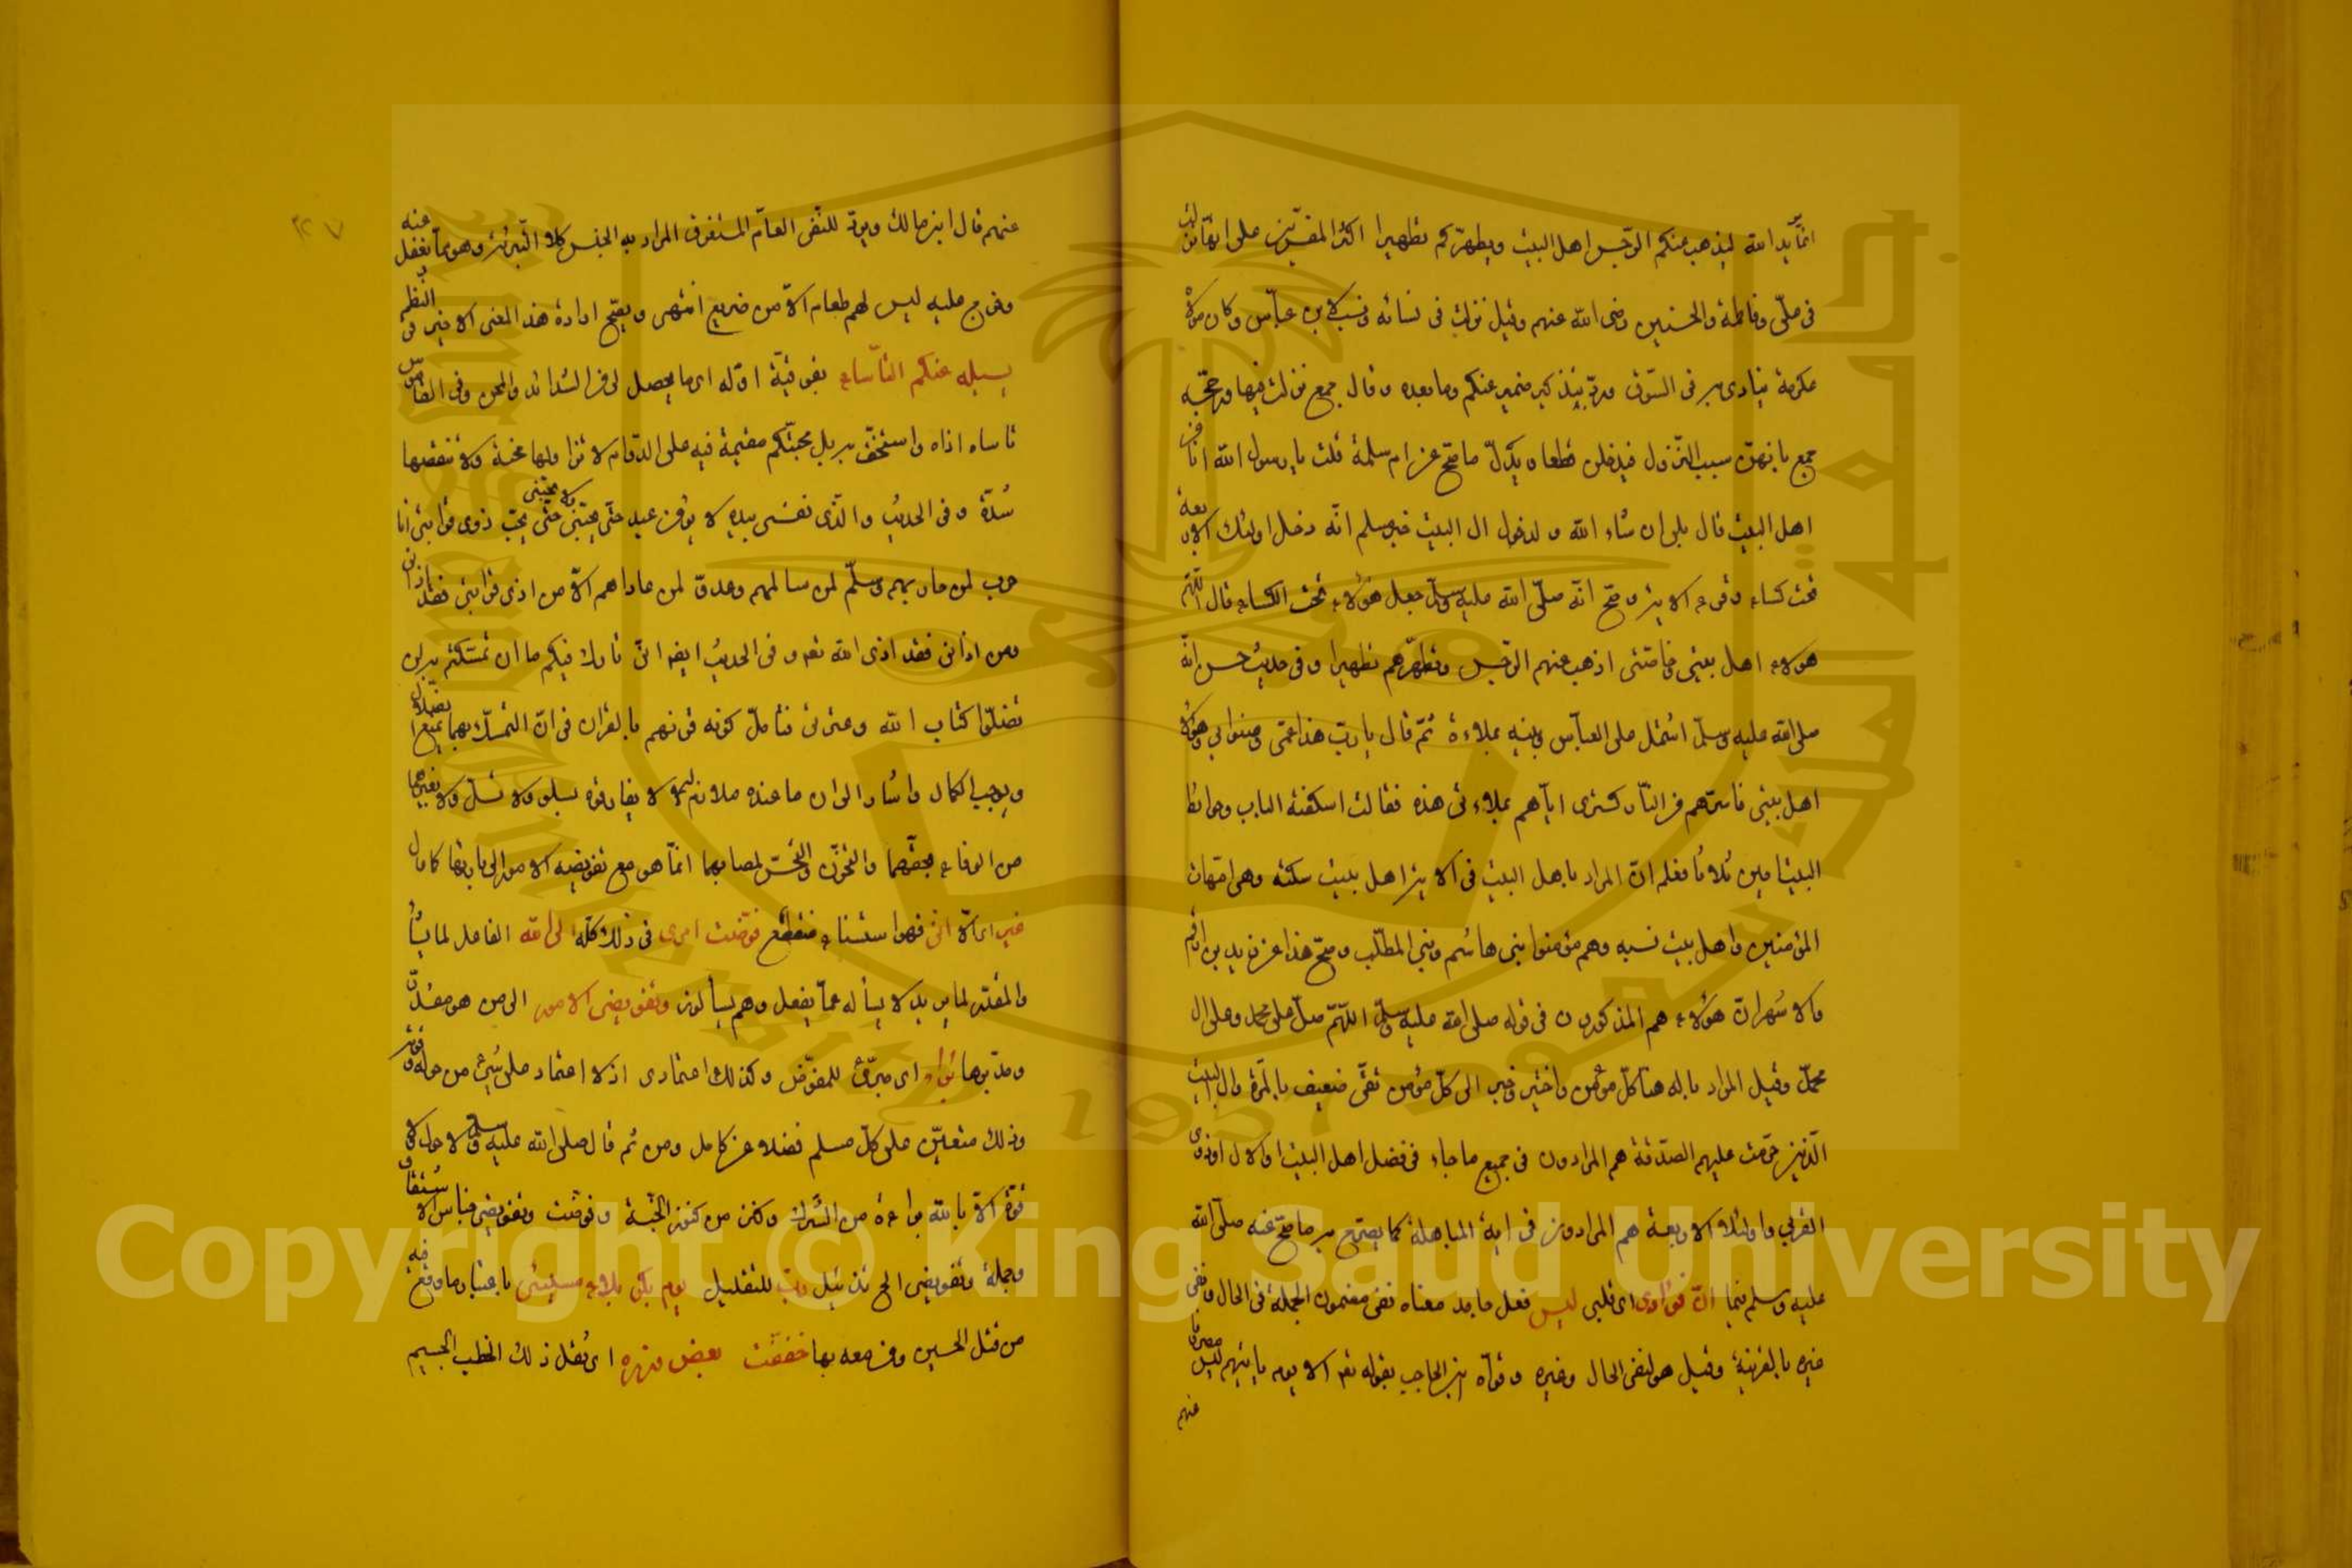 انما يريد الله ليذهب عنكم الرجس اهل البيت ويطهركم تطهيرا اكثر المفسرين على انها نزلت
فى على وفاطمة والحسنين رضى الله عنهم وقيل نزلت فى نسائه ونسب لابن عباس وكان مولاه
عكرمة ينادى به فى السوق ورد بتذكير ضمير عنكم وما بعده وقال جمع نزلت فيهما ورجحه
جمع بانهن سبب النزول فيدخلن قطعا ويدل ما صح عن ام سلمة قلت يا رسول الله انا من
اهل البيت قال بلى ان شاء الله ولدخول ال البيت خبر مسلم انه دخل اولئك الاربعة
تحت كساء وقرء الاية وصح انه صلى الله عليه وسلم جعل هؤلاء تحت الكساء وقال اللهم
هولاء اهل بيتى وخاصتى اذهب عنهم الرجس وطهرهم تطهيرا وفى حديث حسن انه
صلى الله عليه وسلم اشتمل على العباس وبنيه بملاءة ثم قال يا رب هذا عمى وصنو ابى وهؤلاء
اهل بيتى فاسترهم من النار كسترى اياهم بملاءتى هذه فقالت اسكفة الباب وحوائط
البيت امين ثلاثا فعلم ان المراد باهل البيت فى الاية اهل بيت سكنه وهى امهات
المؤمنين واهل بيت نسبه وهم مؤمنوا بنى هاشم وبنى المطلب وصح هذا عن زيد بن ارقم
والاشهر ان هؤلاء هم المذكورون فى قوله صلى الله عليه وسلم اللهم صل على محمد وعلى ال
محمد وقيل المراد باله هنا كل مؤمن واختير وخبر الى كل مؤمن تقى ضعيف بالمرة وال البيت
الذين حرمت عليهم الصدقة هم المرادون فى جميع ما جاء فى فضل اهل البيت او الال او ذوى
القربى واولئك الاربعة هم المرادون فى اية المباهلة كما يصرح به ما صح عنه صلى الله
عليه وسلم فيها ان فؤادى اى قلبى ليس فعل جامد معناه نفى مضمون الجملة فى الحال ونفى
غيره بالقرينة وقيل هو لنفى الحال وغيره وقواه ابن الحاجب بقوله تعه الا يوم ياتيهم ليس مصروفا
عنهم
عنهم قال ابن مالك ويرد للنفى العام المستغرق المراد به الجنس كلا التبرئة وهو مما يغفل عنه
وخرج عليه ليس لهم طعام الا من ضريع انتهى ويصح ارادة هذا المعنى الاخير فى النظم
يسليه عنكم التأساء بفوقية اوله اى ما يحصل لى من الشدائد والمحن وفى القاموس
تاساه اذاه واستخف به بل محبتكم مقيمة فيه على الدوام لا تزاولها محنة ولا تنقصها
شدة وفى الحديث والذى نفسى بيده لا يؤمن عبد حتى يحبنى ولا يحبنى حتى يحب ذوى قرابتى انا
حرب لمن حاربهم وسلم لمن سالمهم وعدو لمن عاداهم الا من اذى قرابتى فقد اذانى
ومن اذانى فقد اذى الله تعه وفى الحديث ايضا انى تارك فيكم ما ان تمسكتم به لن
تضلوا كتاب الله وعترتى فتامل كونه قرنهم بالقران فى ان التمسك بهما يمنع الضلال
ويوجب الكمال واشار الى ان ما عنده ملازم له لا يفارقه بسلو ولا تسل ولا بغيرهما
من الوفاء بحقهما والتحزن والتحسر لمصابهما انما هو مع تفويضه الامور الى باريها كما دل
غير اى الا انى فهو استثناء منقطع فوضت امرى فى ذلك كله الى الله الفاعل لما يشأ
والمقتدر لما يريد لا يسأله عما يفعل وهم يسألون وتفويضى الامور الى من هو مقدر
ومدبرها براء اى مبرئ للمفوض وكذلك اعتمادى اذ لا اعتماد على شئ من حوله وقوته
وذلك متعين على كل مسلم فضلا عن كامل ومن ثم قال صلى الله عليه وسلم لا حول ولا
قوة الا بالله براءة من الشرك وكنز من كنوز الجنة وفوضت وتفويضى جناس الاشتقاق
وجملة وتفويضى الخ تذييل رب للتقليل يوم بكربلاء مسيئى باعتبار ما وقع فيه
من قتل الحسين ومن معه بها خففت بعض وزره اى ثقل ذلك الخطب الجسيم